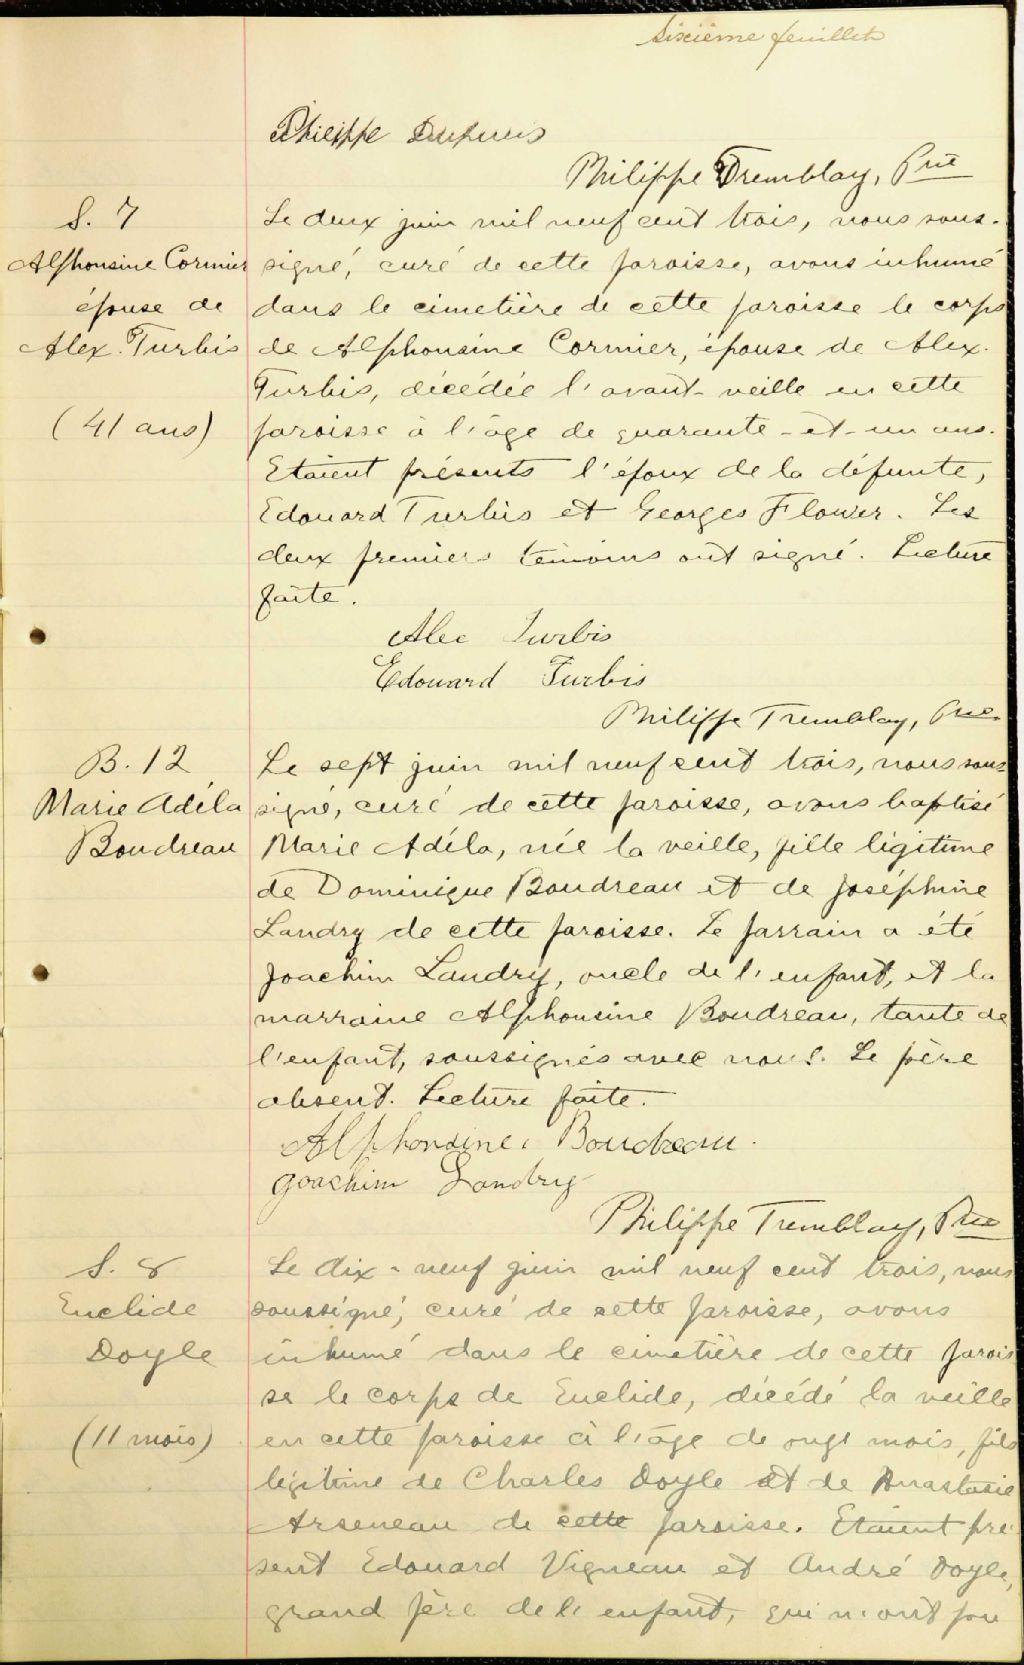 Sixième feuillet
Philippe Dupuis
Philippe Tremblay, Ptre
S. 7
Alphonsine Cormier
épouse de
Alex. Turbis
(41 ans)
Le deux juin mil neuf cent trois, nous sous-
signé, curé de cette paroisse, avons inhumé
dans le cimetière de cette paroisse le corps
de Alphonsine Cormier, épouse de Alex.
Turbis, décédée l'avant-veille en cette
paroisse à l'âge de quarante-et-un ans.
Etaient présents l'époux de la défunte,
Edouard Turbis et Georges Flower. Les
deux premiers témoins ont signé. Lecture
faite.
Alec Turbis
Edouard Turbis
Philippe Tremblay, Ptre.
B. 12
Marie Adéla
Boudreau
Le sept juin mil neuf cent trois, nous sous-
signé, curé de cette paroisse, avons baptisé
Marie Adéla, née la veille, fille légitime
de Dominique Boudreau et de Joséphine
Landry de cette paroisse. Le parrain a été
Joachim Landry, oncle de l'enfant, et la
marraine Alphonsine Boudreau, tante de
l'enfant, soussignés avec nous. Le père
absent. Lecture faite.
Alphonsine Boudreau.
Joachim Landry
Philippe Tremblay, Ptre
S. 8
Euclide
Doyle
(11 mois)
Le dix-neuf juin mil neuf cent trois, nous
soussigné, curé de cette paroisse, avons
inhumé dans le cimetière de cette parois
se le corps de Euclide, décédé la veille
en cette paroisse à l'âge de onze mois, fils
légitime de Charles Doyle et de Anastasie
Arseneau de cette paroisse. Etaient pré
sent Edouard Vigneau et André Doyle,
grand père de l'enfant, qui n'ont pu